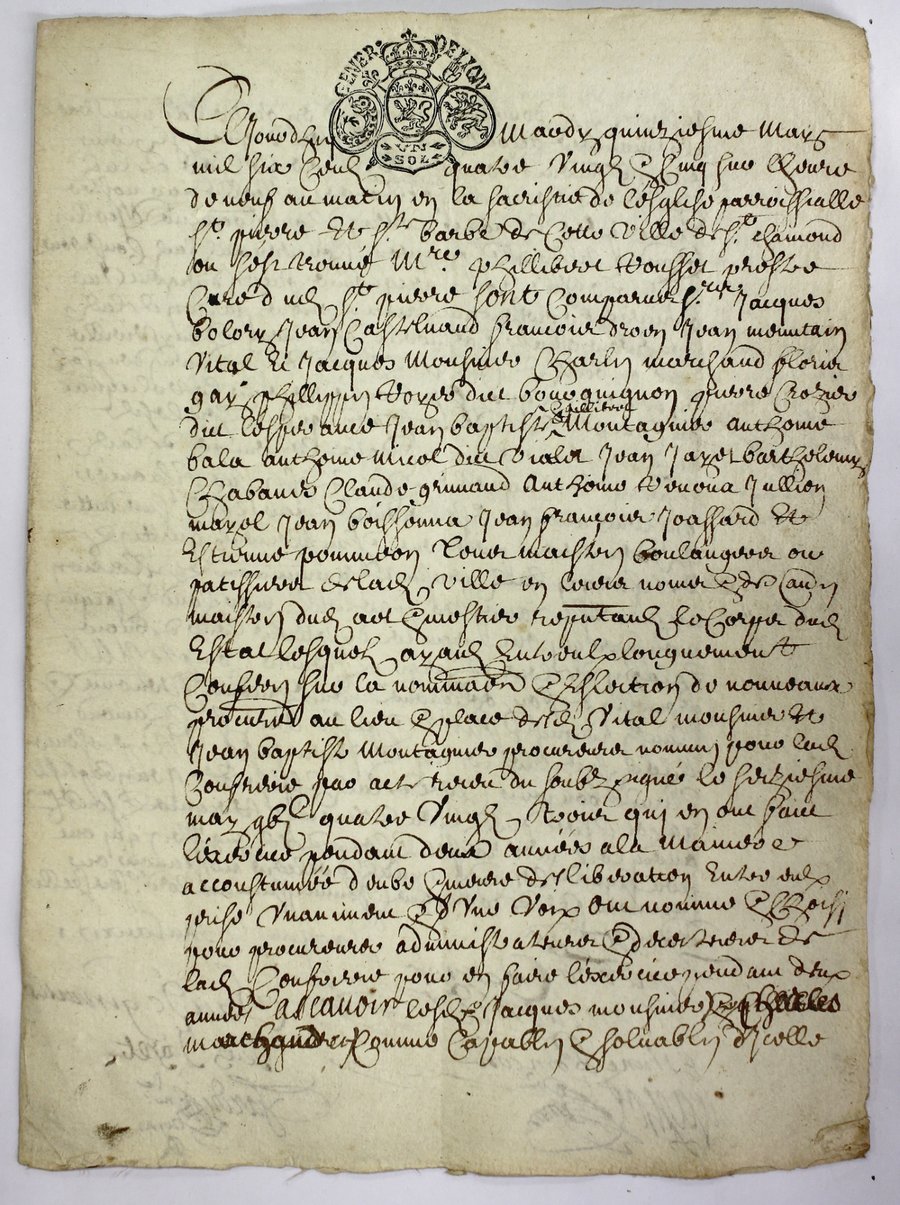 GENER. DE LION
UN
SOL
Cejourdhuy Mardy quinziesme Mars
mil six Cent quatre Vingt & Cinq sur Lheure
de neuf au matin en la sacristie de lesglise parrochialle
St. pierre Et Ste barbe de Cette Ville de St. chamond
ou sest trouvé Mre. phillibert prestre
Curé dud St. pierre sont Comparus srs. Jacques
bolory Jean Castelnaud francois Jean
Vital Et Jacques Mousnier Charles marchand floris
gay phillippes dict bourguignon pierre Crozier
dict lesperance Jean baptiste Montagnier anthoine
bala anthoine nicol dict Jean Jayet barthelemy
Chabanes Claude grimaud Anthoine Jullien
mazel Jean boissonna Jean francois Joassard Et
Estienne tous maistres boulangers ou
patissiers de lad Ville en leurs noms & de
maistres dud art & mestier Le Corps dud
Estat lesquels ayant Entre eulx longuement
Conferes sur la nomination & Eslection de nouveaux
procureurs au lieu & place desd Vital mousnier Et
Jean baptiste Montagnier procureurs nommes pour lad
Confrerie par acte receu du soubz signé le seiziesme
may quatre Vingt trois qui en ont faict
lexercice pendant deux années a la Maniere
accoustumée deube & meure desliberation Entre eulx
prise Vnanimem & dVne Voix Ont nommé & Choisi
pour procureurs administrateurs & directeurs de
lad Confrerie pour en faire lexercice pendant deux
années ascavoir lesd Jacques mousnier & Charles
marchand Comme Capables & solvables dicelle